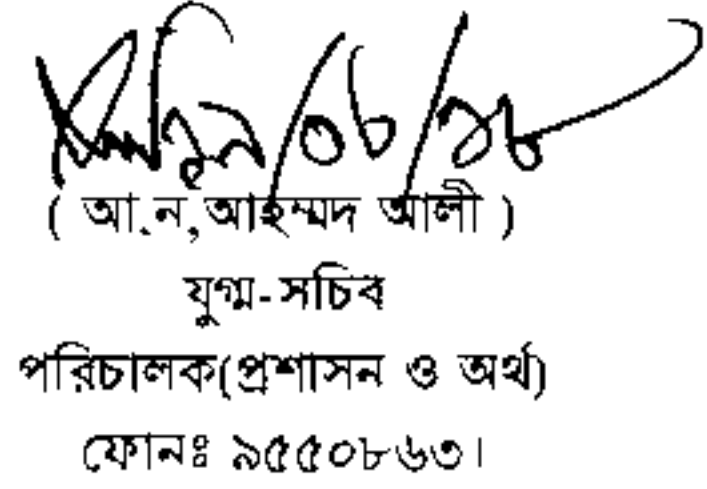 ( আ.ন,আহম্মদ আলী )
যুগ্ম-সচিব
পরিচালক(প্রশাসন ও অর্থ)
ফোনঃ ৯৫৫০৮৬৩।